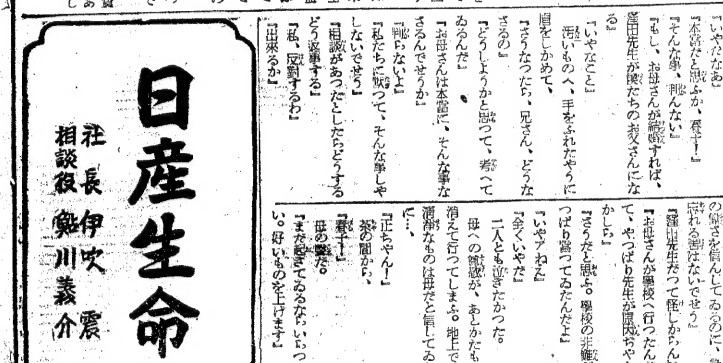 『いやだなあ』
『本當だと思ふか、春子！』
『そんな事、判んない』
『もし、お母さんが結婚すれば、
窪田先生が僕たちのお父さんにな
る』
『いやなこと』
汚いものへ、手をふれたやうに
眉をしかめて、
『さうなつたら、兄さん、どうな
さるの』
『どうしようかと思つて、考へて
ゐるんだ』
『お母さんは本當に、そんな事な
さるんでせうか』
『判らないよ』
『私たちに默つて、そんな事しや
しないでせう』
『相談があつたとしたらどうする
どう返事する』
『私、反對するわ』
『出來るか』
を信んしてゐるのに、
忘れる筈はないでせう』
『窪田先生だつて怪しからん』
『お母さんが學校へ行つたん
て、やつぱり先生が原因ぢや
かしら』
『さうだと思ふ。學校の非難
つぱり當つてゐたんだよ』
『いやアねえ』
『全くいやだ』
二人とも泣きたかつた。
母への敬慕が、あとかたも
消えて行つてしまふ。地上で
清淨なものは母だと信じてゐ
に…、
『正ちゃん！』
茶の間から、
『春子！』
母の聲だ。
『まだ起きてゐるならいらつ
い。好いものを上げます』
日産生命
社長 伊吹震
相談役 鮎川義介